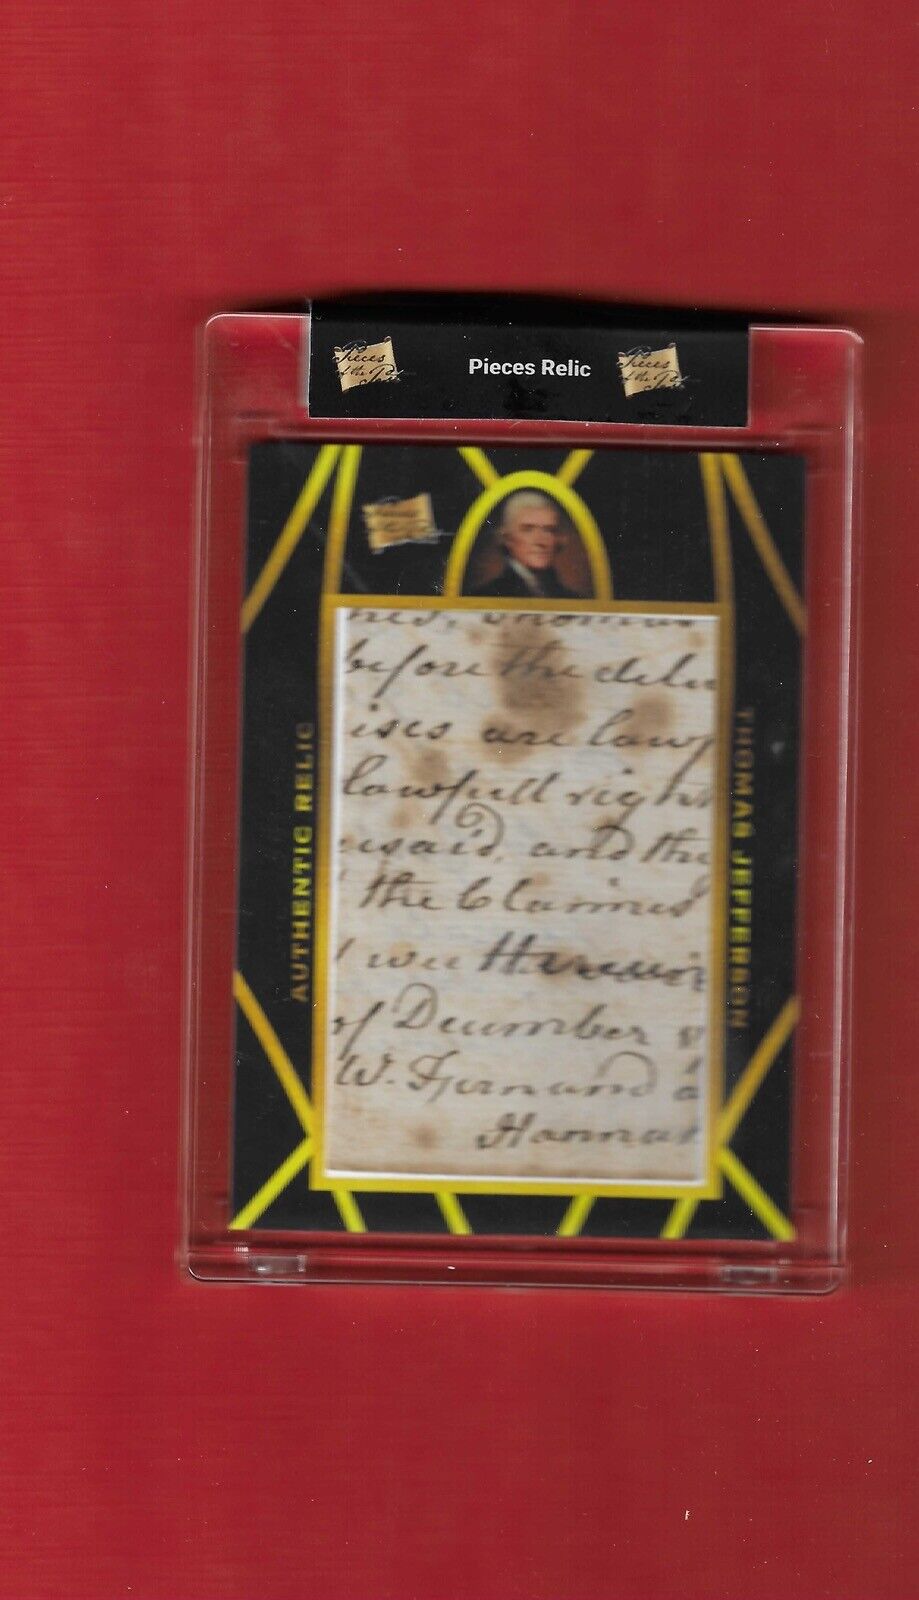 Pieces
of the Past
Pieces Relic
Pieces
of the Past
AUTHENTIC RELIC
THOMAS JEFFERSON
before the deliv
ises are lawf
lawfull right
esaid, and the
the Claimes
of December 8
W.